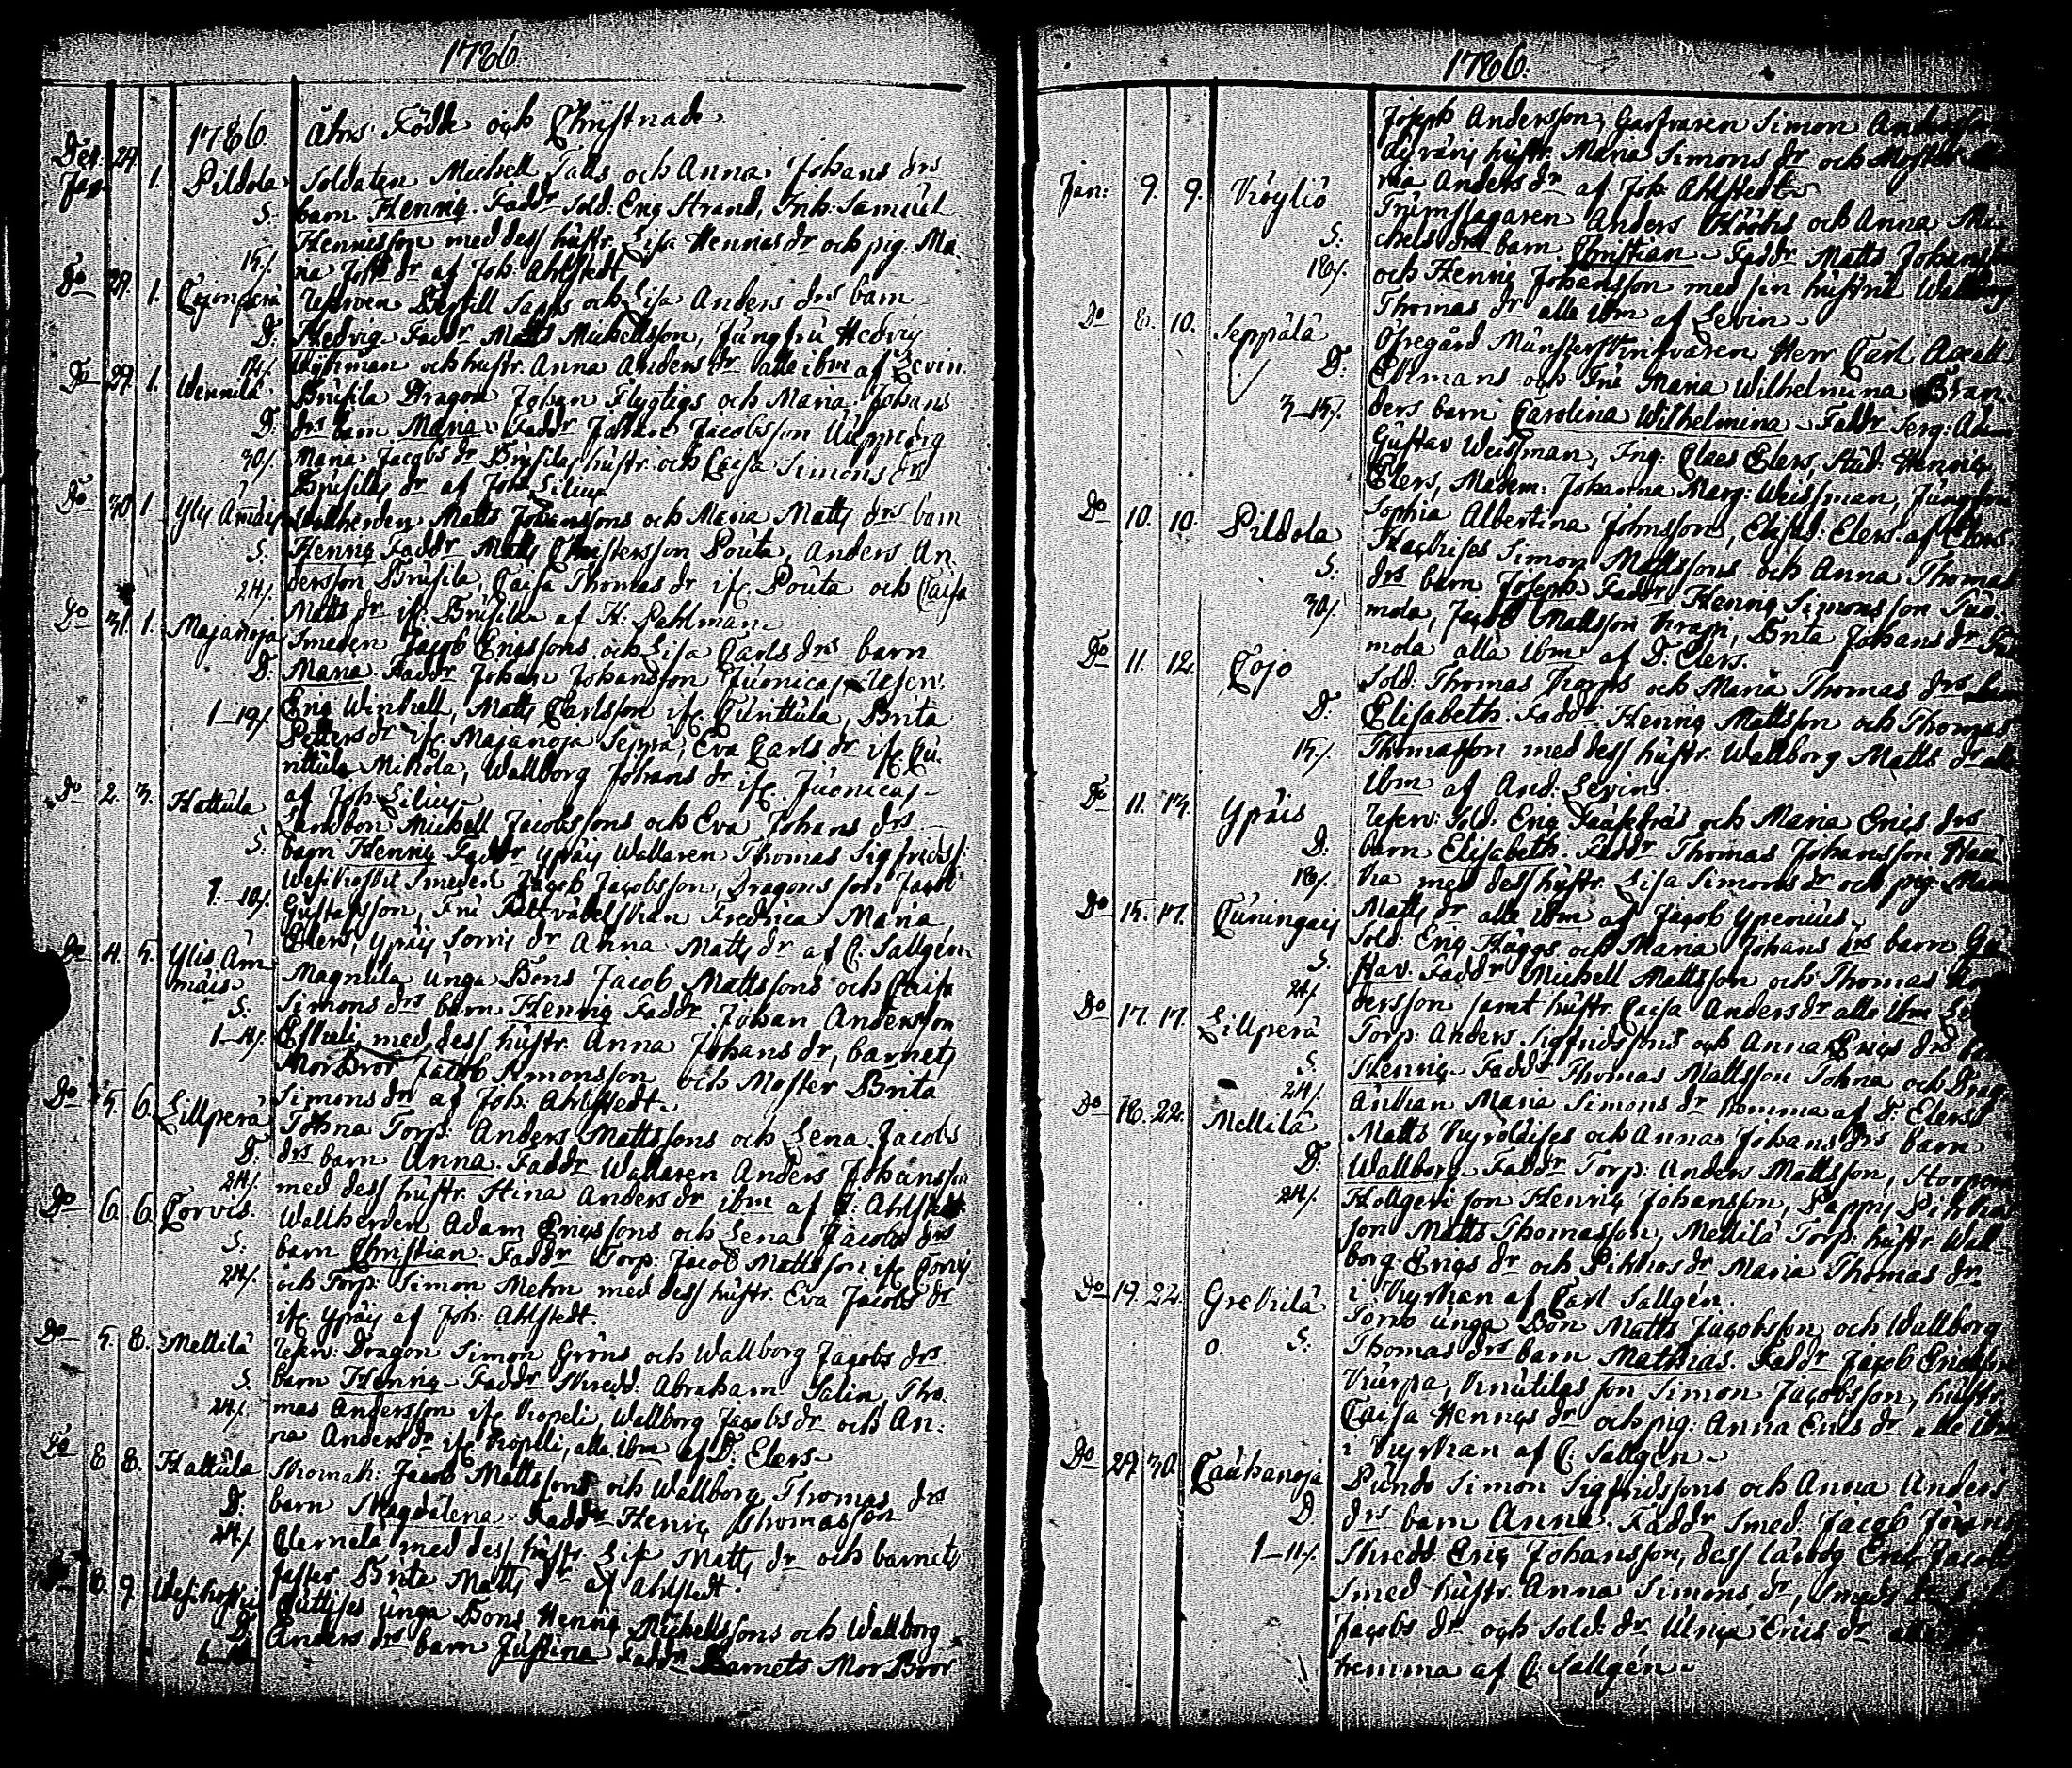 1786.
1786. Åhrs Födde och Christnade
Dec: 29. 1. Pildola Soldaten Michell Talls och Anna Johans drs
Jan:
S. barn Henric. Faddr Sold: Eric Strand, Inh: Samuel
Henricsson med dess hustr. Lisa Henrics dr och pig. Ma-
15/. ria Josephs dr af Joh: Ahlstedt
Do 29. 1. Cojonperä Reserven Bertill Sapps och Lisa Anders drs barn
D. Hedvig. Faddr Matts Michellsson, Jungfru Hedvig
18/. Wijkman och hustr. Anna Anders dr alla ibm af Levin.
Do 29. 1. Wennilä Brusila Dragon Johan Flygtigs och Maria Johans
D. drs barn Maria. Faddr Johan Jacobsson
30/. Maria Jacobs dr Brusilas hustr. och Caisa Simons dr
Brusilas dr af Joh. Lilius
Do 30 1. Yli Ämäis Wallherden Matts Johanssons och Maria Matts drs barn
S. Henric Faddr Matts Christersson Pouta, Anders An-
dersson Brusila, Caisa Thomas dr ifr. Pouta och Caisa
24/. Matts dr ifr. Brusila af H. Pahlman
Do 31. 1. Majanoja Smeden Jacob Ericssons och Lisa Carls drs barn
D. Maria. Faddr Johan Johansson Juonicas Reserv.
Eric Winkell, Matts Carlsson ifr. Cunttula, Brita
1_19/. Petters dr ifr. Majanoja Seppä, Eva Carls dr ifr. Cu-
nttula Mikola, Wallborg Johans dr ifr. Juonicas
af Joh. Lilius
Do 2. 3. Hattula Landbon Michell Jacobssons och Eva Johans drs
S. barn Henric Faddr Ypäis Wallaren Thomas Sigfridss:
Wesikoskis Smeden Jacob Jacobsson, Dragons son Jacob
1_10/. Gustafsson, Fru Fältväbelskan Fredrica Maria
Elers, Ypäis Sonis dr Anna Matts dr af C: Sallgén
Do 4. 5. Ylis Äm- Magnula Unga Bons Jacob Mattssons och Caisa
mäis
S. Simons drs barn Henric Faddr Johan Andersson
1_4/. Eskeli med dess hustr. Anna Johans dr, barnets
Morbror Jacob Simonsson och Moster Brita
Simons dr af Joh. Ahlstedt.
Do 5. 6. Lillperä Tohna Torp: Anders Mattssons och Lena Jacobs
D. drs barn Anna. Faddr Wallaren Anders Johansson
24/. med dess hustr. Stina Anders dr ibm af J: Ahlstedt.
Do 6. 6. Torvis. Wallherden Adam Ericssons och Lena Jacobs drs
S. barn Christian. Faddr Torp: Jacob Mattsson ifr. Torvis
24/. och Torp. Simon Mehn med dess hustr. Eva Jacobs dr
ifr. Ypäis af Joh: Ahlstedt.
Do 5. 8. Mellilä Reserv: Dragon Simon Gröns och Wallborg Jacobs drs
S. barn Henric Faddr Skredd: Abraham Salin, Tho-
24/. mas Andersson ifr. Kopeli, Wallborg Jacobs dr och An-
na Anders dr ifr. Kopeli, alla ibm af D: Elers.
Do 8 8. Hattula Skomak: Jacob Mattssons och Wallborg Thomas drs
D. barn Magdalena. Faddr Henric Thomasson
24/. med dess hustr. Lisa Matts dr och barnets
faster Brita Matts dr af Ahlstedt.
8. 9. Wesikoski Unga Bons Henric Michellssons och Wallborg
D. Anders drs barn Justina Faddr Barnets Mor Bror
1786.
Joseph Andersson, Gastvaren Simon Anderss
hustr. Maria Simons dr och Moster Ma
ria Anders dr af Joh: Ahlstedt
Jan: 9. 9. Köyliö Trumslagaren Anders Hööks och Anna Mi-
S. chels drs barn Christian. Faddr Matts Johansson
18/. och Henric Johansson med sin hustru Wallborg
Thomas dr alla ibm af Levin.
Do 8. 10. Seppälä Öfregård Munsterskrifvaren Herr Carl Axell
D. Ekmans och Fru Maria Wilhelmina Bran-
3_15/. ders barn Carolina Wilhelmina. Faddr Serg: Adam
Gustav Weissman, Ing. Claes Elers, Stud: Henric
Elers, Madem: Johanna Marg: Weissman, Jungfru
Sophia Albertina Johnsson, Elisab: Elers af Elers.
Do 10. 10. Pildola Simon Mattssons och Anna Thomas
S. drs barn Joseph. Faddr Henric Simonsson Tuo-
30/. mola, Jacob Mattsson Krapi, Brita Johans dr Tuo-
mola alla ibm af D: Elers.
Do 11. 12. Cojo Sold: Thomas Trapps och Maria Thomas drs barn
D. Elisabeth. Faddr Henric Mattsson och Thomas
15/. Thomasson med dess hustr. Wallborg Matts dr alla
ibm af And: Levin.
Do 11. 13. Ypäis Reserv: Sold: Eric och Maria Erics drs
D. barn Elisabeth. Faddr Thomas Johansson Haa-
18/. via med dess hustr. Lisa Simons dr och pig. Maria
Matts dr alla ibm af Jacob Ypenius.
Do 15. 17. Cuningais Sold: Eric Huggs och Maria Johans drs barn Gu-
S. stav. Faddr Michell Mattsson och Thomas An-
24/. dersson samt hustr. Caisa Anders dr alla ibm
Do 17. 17. Lillperä Torp: Anders Sigfridssons och Anna Erics drs barn
S. Henric. Faddr Thomas Mattsson Tohna och Drag:
24/. Änkan Maria Simons dr hemma af D: Elers
Do 18. 22. Mellilä Matts och Anna Johans drs barn
D. Wallborg. Faddr Torp: Anders Mattsson, Storpere
24/. Hollgers son Henric Johansson, Papps Pikkas
son Matts Thomasson, Mellilä Torp: hustr. Wall-
borg Erics dr och Pikkos dr Maria Thomas dr
i Kyrkan af Carl Sallgén.
Do 19. 22. Greckilä Sorris unga Bon Matts Jacobsson och Wallborg
o. S. Thomas drs barn Mathias. Faddr Jacob Ericsson
Kuurpa, Knutilas son Simon Jacobsson, hustr.
Caisa Henrics dr och pig: Anna Erics dr alla ibm
i Kyrkan af C: Sallgén.
Do 29 30. Cauhanoja Pundo Simon Sigfridssons och Anna Anders
D. drs barn Anna. Faddr Smed. Jacob Jörans
1_11/. Skredd. Eric Johansson, dess lärbog Eric Jacobs
smed hustr. Anna Simons dr, Smeds
Jacobs dr och Sold: dr Ulrica Erics dr
hemma af C. Sallgén.